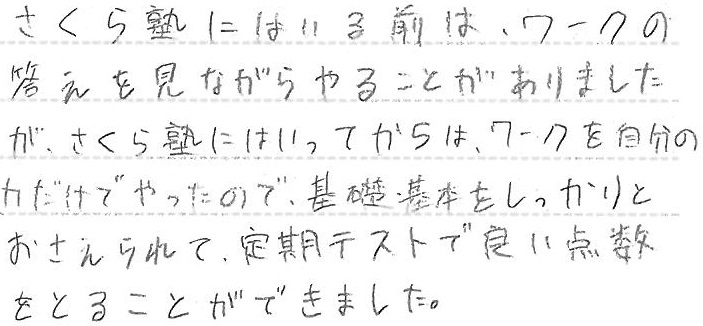 さくら塾にはいる前は、ワークの
答えを見ながらやることがありました
が、さくら塾にはいってからは、ワークを自分の
力だけでやったので、基礎基本をしっかりと
おさえられて、定期テストで良い点数
をとることができました。